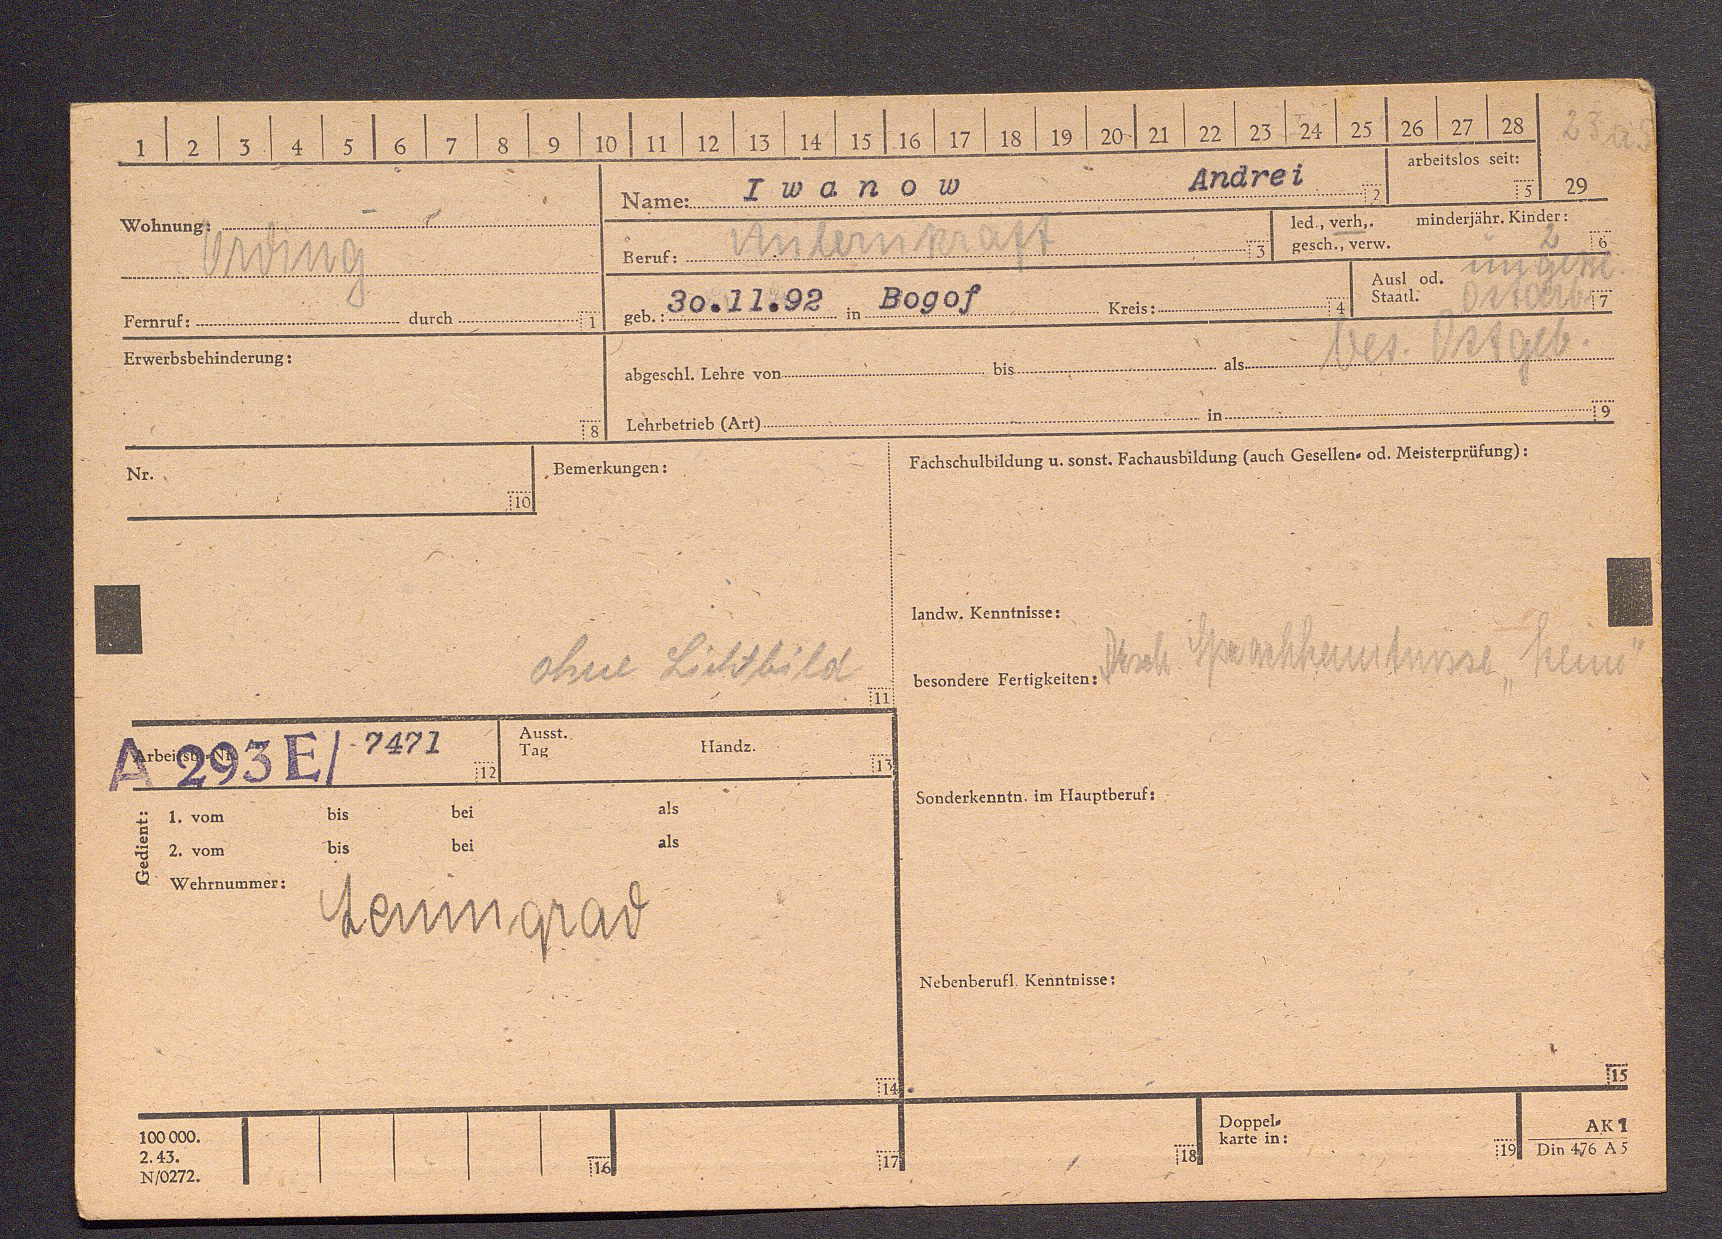 1 2 3 4 5 6 7 8 9 10 11 12 13 14 15 16 17 18 19 20 21 22 23 24 25 26 27 28
29
Name: Iwanow Andrei 2
arbeitslos seit: 5
Wohnung: Ording
Beruf: 3
led., verh,. gesch., verw.
minderjähr. Kinder: 2 6
geb.: 30.11.92 in Bogof Kreis: 4
Ausl od. Staatl. 7
bes. Ostgeb.
Fernruf: durch 1
Erwerbsbehinderung: 8
abgeschl. Lehre von bis als
Lehrbetrieb (Art) in 9
Nr. 10
Bemerkungen:
ohne Lichtbild
11
Fachschulbildung u. sonst. Fachausbildung (auch Gesellen- od. Meisterprüfung):
landw. Kenntnisse:
besondere Fertigkeiten: Sprachkenntnisse „keine"
A 293 E/ 7471 12
Ausst. Tag Handz. 13
Sonderkenntn. im Hauptberuf:
Gedient:
1. vom bis bei als
2. vom bis bei als
Wehrnummer:
Leningrad
14
Nebenberufl. Kenntnisse:
15
100 000.
2. 43.
N/0272.
16 17 18
Doppel-
karte in: 19
AK 1
Din 476 A 5